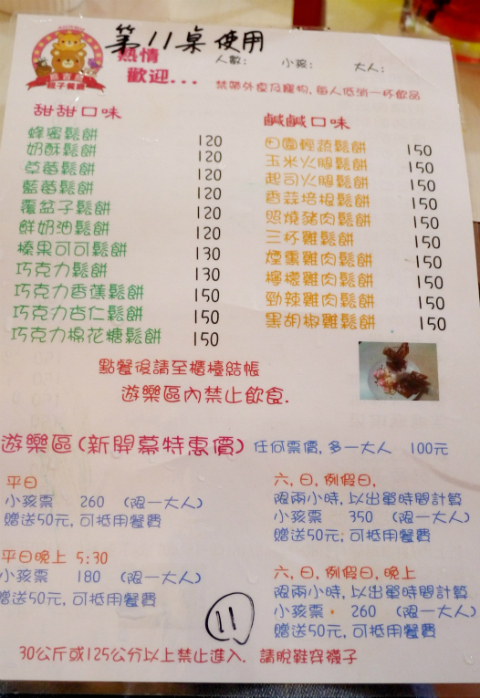 第11桌使用
熱情
歡迎...
人數: 小孩: 大人:
禁帶外食及寵物,每人低消一杯飲品
親子餐廳
甜甜口味
蜂蜜鬆餅 120
奶酥鬆餅 120
草莓鬆餅 120
藍莓鬆餅 120
覆盆子鬆餅 120
鮮奶油鬆餅 120
榛果可可鬆餅 130
巧克力鬆餅 130
巧克力香蕉鬆餅 150
巧克力杏仁鬆餅 150
巧克力棉花糖鬆餅 150
鹹鹹口味
田園輕蔬鬆餅 150
玉米火腿鬆餅 150
起司火腿鬆餅 150
香蒜培根鬆餅 150
照燒豬肉鬆餅 150
三杯雞鬆餅 150
燻雞雞肉鬆餅 150
檸檬雞肉鬆餅 150
勁辣雞肉鬆餅 150
黑胡椒雞鬆餅 150
點餐後請至櫃檯結帳
遊樂區內禁止飲食.
遊樂區(新開幕特惠價) 任何票價,多一大人 100元
平日
小孩票 260 (限一大人)
贈送50元,可抵用餐費
平日晚上 5:30
小孩票 180 (限一大人)
贈送50元,可抵用餐費
六,日,例假日,
限兩小時,以出單時間計算
小孩票 350 (限一大人)
贈送50元,可抵用餐費
六,日,例假日,晚上
限兩小時,以出單時間計算
小孩票 260 (限一大人)
贈送50元,可抵用餐費
11
30公斤或125公分以上禁止進入. 請脫鞋穿襪子